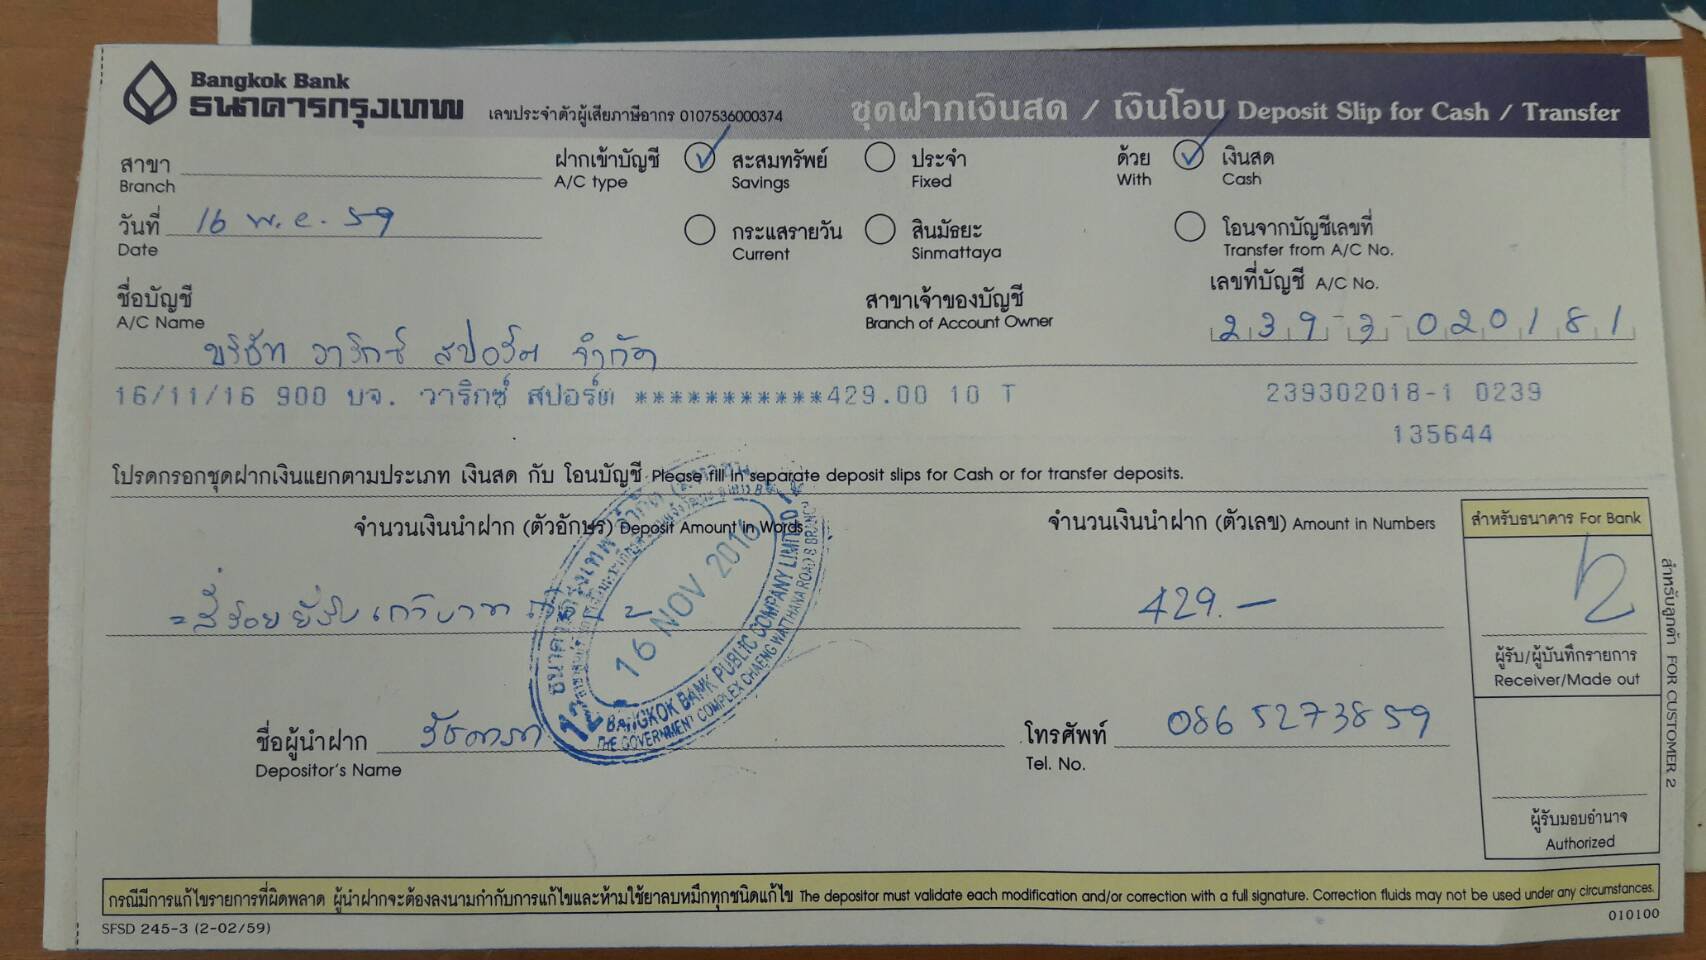 Bangkok Bank
ธนาคารกรุงเทพ
เลขประจำตัวผู้เสียภาษีอากร 0107536000374
ชุดฝากเงินสด / เงินโอน Deposit Slip for Cash / Transfer
สาขา
Branch
ฝากเข้าบัญชี
A/C type
สะสมทรัพย์
Savings
ประจำ
Fixed
ด้วย
With
เงินสด
Cash
วันที่ 16 พ.ย. 59
Date
กระแสรายวัน
Current
สินมัธยะ
Sinmattaya
โอนจากบัญชีเลขที่
Transfer from A/C No.
ชื่อบัญชี
A/C Name
บริษัท วาริกซ์ สปอร์ต จำกัด
สาขาเจ้าของบัญชี
Branch of Account Owner
เลขที่บัญชี A/C No.
239-3-020181
16/11/16 900 บจ. วาริกซ์ สปอร์ต ***********429.00 10 T 239302018-1 0239
135644
โปรดกรอกชุดฝากเงินแยกตามประเภท เงินสด กับ โอนบัญชี Please fill in separate deposit slips for Cash or for transfer deposits.
จำนวนเงินนำฝาก (ตัวอักษร) Deposit Amount in Words
จำนวนเงินนำฝาก (ตัวเลข) Amount in Numbers
สำหรับธนาคาร For Bank
= สี่ร้อยยี่สิบเก้าบาท
429.—
16 NOV 2016
BANGKOK BANK PUBLIC COMPANY LIMITED
THE GOVERNMENT COMPLEX CHAENG WATTHANA ROAD B BRANCH
ผู้รับ/ผู้บันทึกรายการ
Receiver/Made out
ชื่อผู้นำฝาก
Depositor's Name
โทรศัพท์ 0865273859
Tel. No.
ผู้รับมอบอำนาจ
Authorized
สำหรับลูกค้า FOR CUSTOMER 2
กรณีมีการแก้ไขรายการที่ผิดพลาด ผู้นำฝากจะต้องลงนามกำกับการแก้ไขและห้ามใช้ยาลบหมึกทุกชนิดแก้ไข The depositor must validate each modification and/or correction with a full signature. Correction fluids may not be used under any circumstances.
SFSD 245-3 (2-02/59)
010100